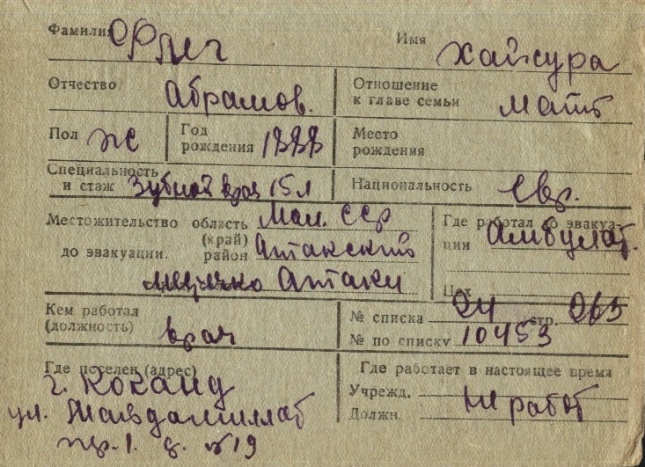 Фамилия Фляг Имя Хайсура
Отчество Абрамов. Отношение к главе семьи мать
Пол ж Год рождения 1888 Место рождения
Специальность и стаж Зубной врач 15 л Национальность евр.
Местожительство область Мол. ССР Где работал до эвакуа-
(край) ции Амбулат.
до эвакуации. район Атакский
местечко Атаки Цех
Кем работал № списка 24 стр. 265
(должность) врач № по списку 10453
Где поселен (адрес) Где работает в настоящее время
г. Коканд Учрежд. не работ
ул. Должн.
пр. 1. д. №19